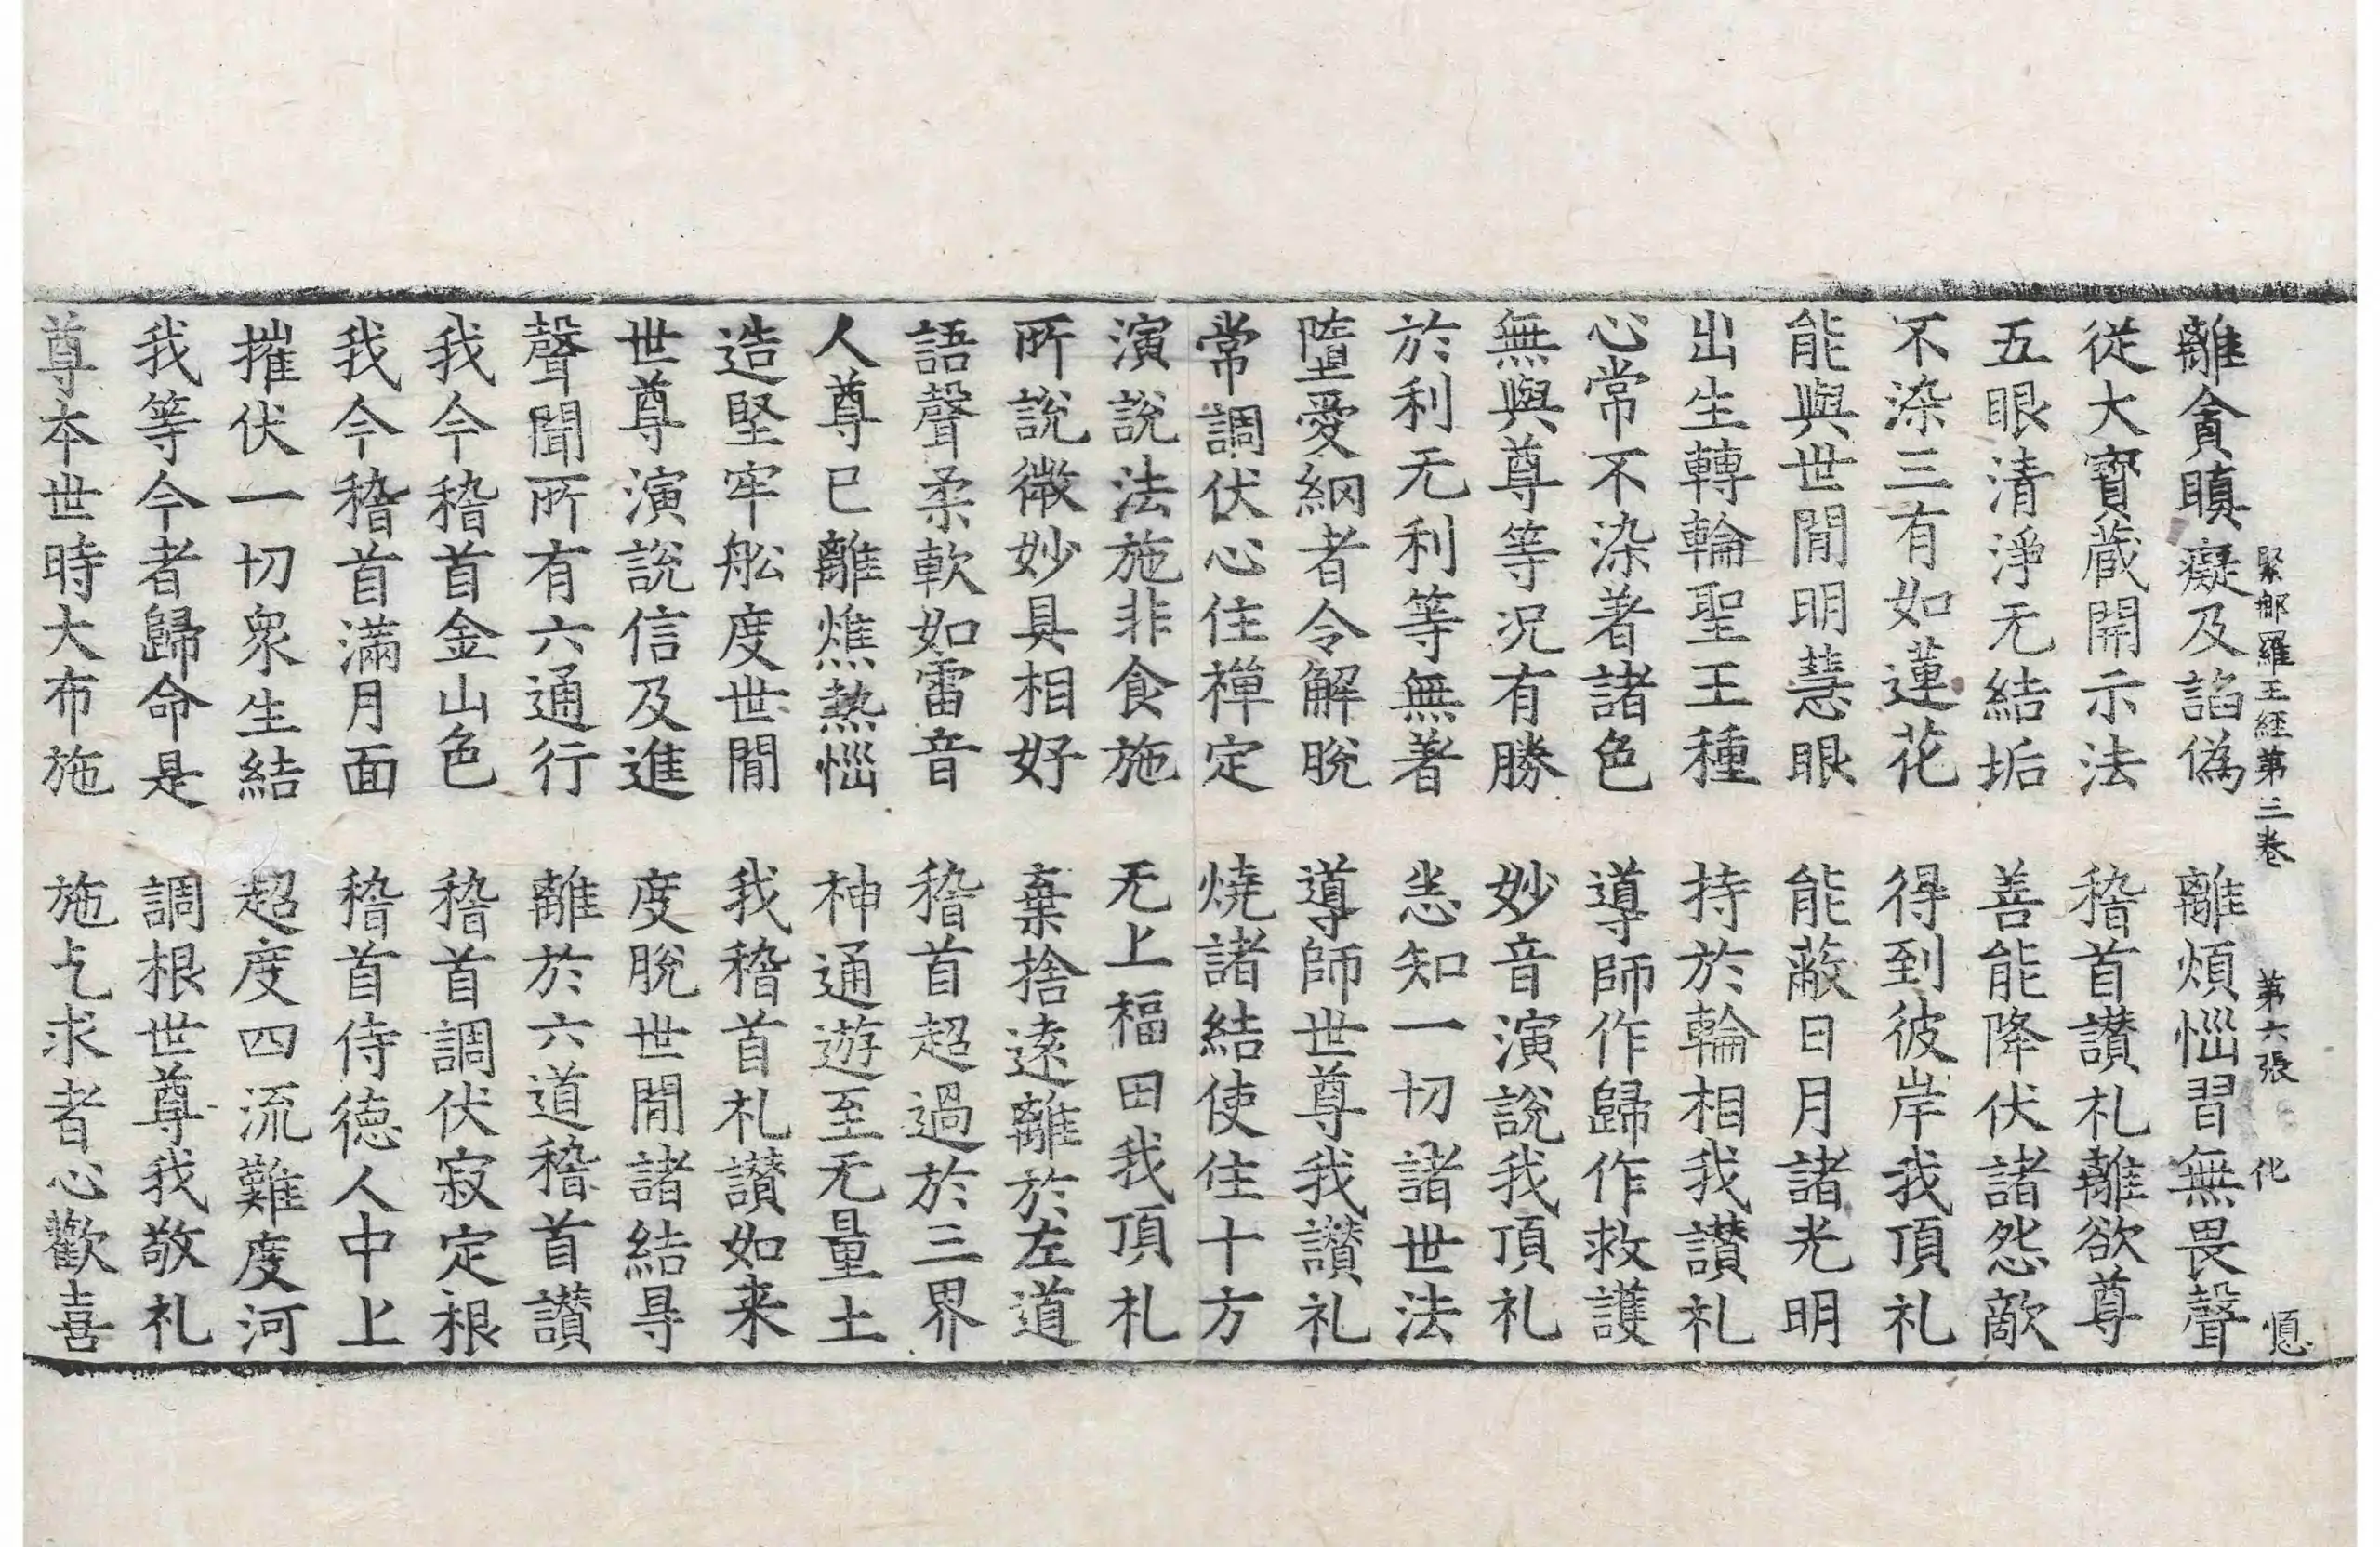 緊那羅王經第二卷　第六張　化　㥥
離貪瞋癡及諂偽　離煩惱習無畏聲
從大寶蔵開示法　稽首讃礼離欲尊
五眼清淨无結垢　善能降伏諸怨敵
不染三有如蓮花　得到彼岸我頂礼
能與世間明慧眼　能蔽日月諸光明
出生轉輪聖王種　持於輪相我讃礼
心常不染著諸色　導師作歸作救護
無與尊等況有勝　妙音演說我頂礼
於利无利等無著　悉知一切諸世法
墮愛網者令解脫　導師世尊我讃礼
常調伏心住禪定　燒諸結使住十方
演說法施非食施　无上福田我頂礼
所說微妙具相好　棄捨遠離於左道
語聲柔軟如雷音　稽首超過於三界
人尊已離燋熱惱　神通遊至无量土
造堅牢舩度世間　我稽首礼讃如来
世尊演說信及進　度脫世間諸結㝵
聲聞所有六通行　離於六道稽首讃
我今稽首金山色　稽首調伏寂定根
我今稽首滿月面　稽首侍德人中上
摧伏一切衆生結　超度四流難度河
我等今者歸命是　調根世尊我敬礼
尊本世時大布施　施乞求者心歡喜